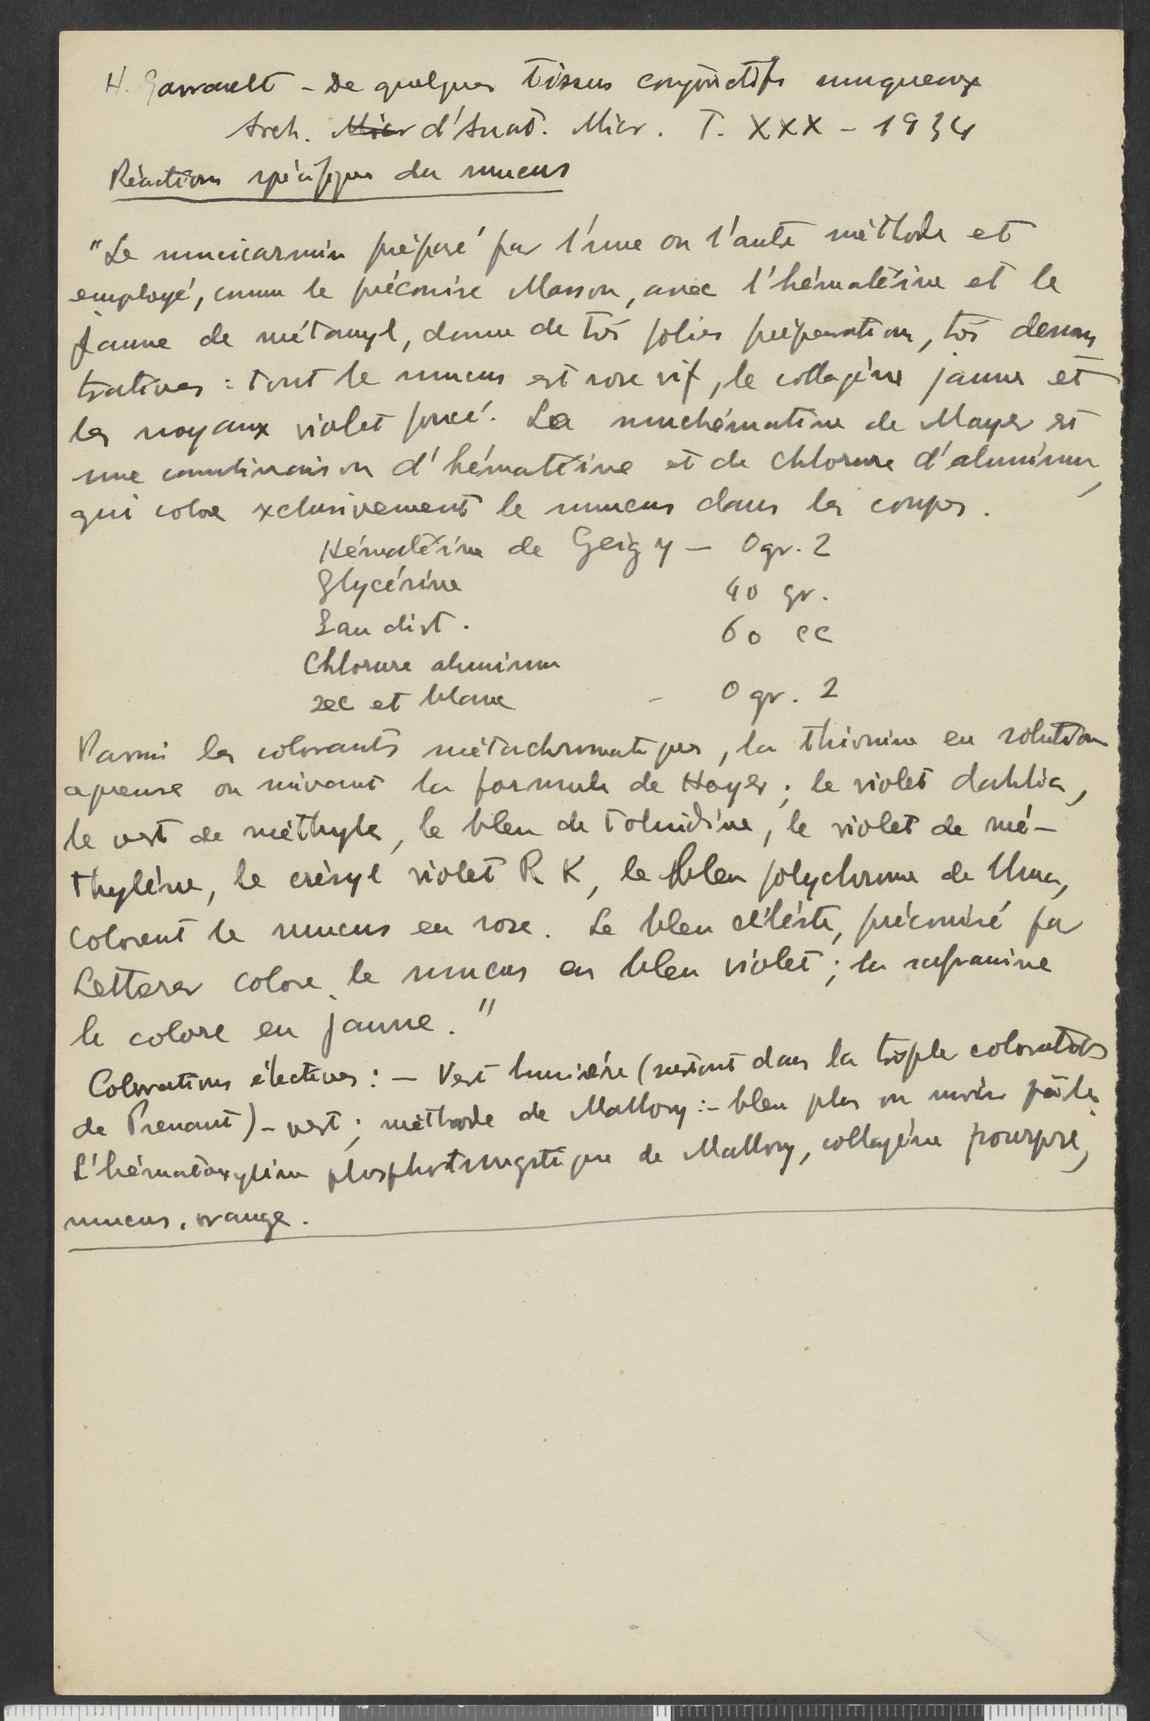 H. Garrault - De quelques tissus conjonctifs muqueux
Arch. Micr d'Anat. Micr. T. XXX - 1934
Réactions spécifiques du mucus
"Le mucicarmin préparé par l'une ou l'autre méthode et
employé, comme le préconise Masson, avec l'hématéine et le
jaune de métanyl, donne de très jolies préparations, très démons
tratives : tout le mucus est rose vif, le collagène jaune et
les noyaux violet foncé. La muchématine de Mayer est
une combinaison d'hématéine et de chlorure d'aluminium,
qui colore exclusivement le mucus dans les coupes.
Hématéine de Geigy - 0gr. 2
Glycérine 40 gr.
Eau dist. 60 cc
Chlorure aluminium
sec et blanc - 0gr. 2
Parmi les colorants métachromatiques, la thionine en solution
aqueuse ou suivant la formule de Hoyer ; le violet dahlia,
le vert de méthyle, le bleu de toluidine, le violet de mé-
thylène, le crésyl violet R K, le bleu polychrome de Unna,
colorent le mucus en rose. Le bleu céleste, préconisé par
Letterer colore le mucus en bleu violet ; la safranine
le colore en jaune."
Colorations électives : - Vert lumière (surtout dans la triple coloration
de Prenant) - vert ; méthode de Mallory :- bleu plus ou moins pâle.
L'hématoxyline phosphotungstique de Mallory, collagène pourpre,
mucus, orange.